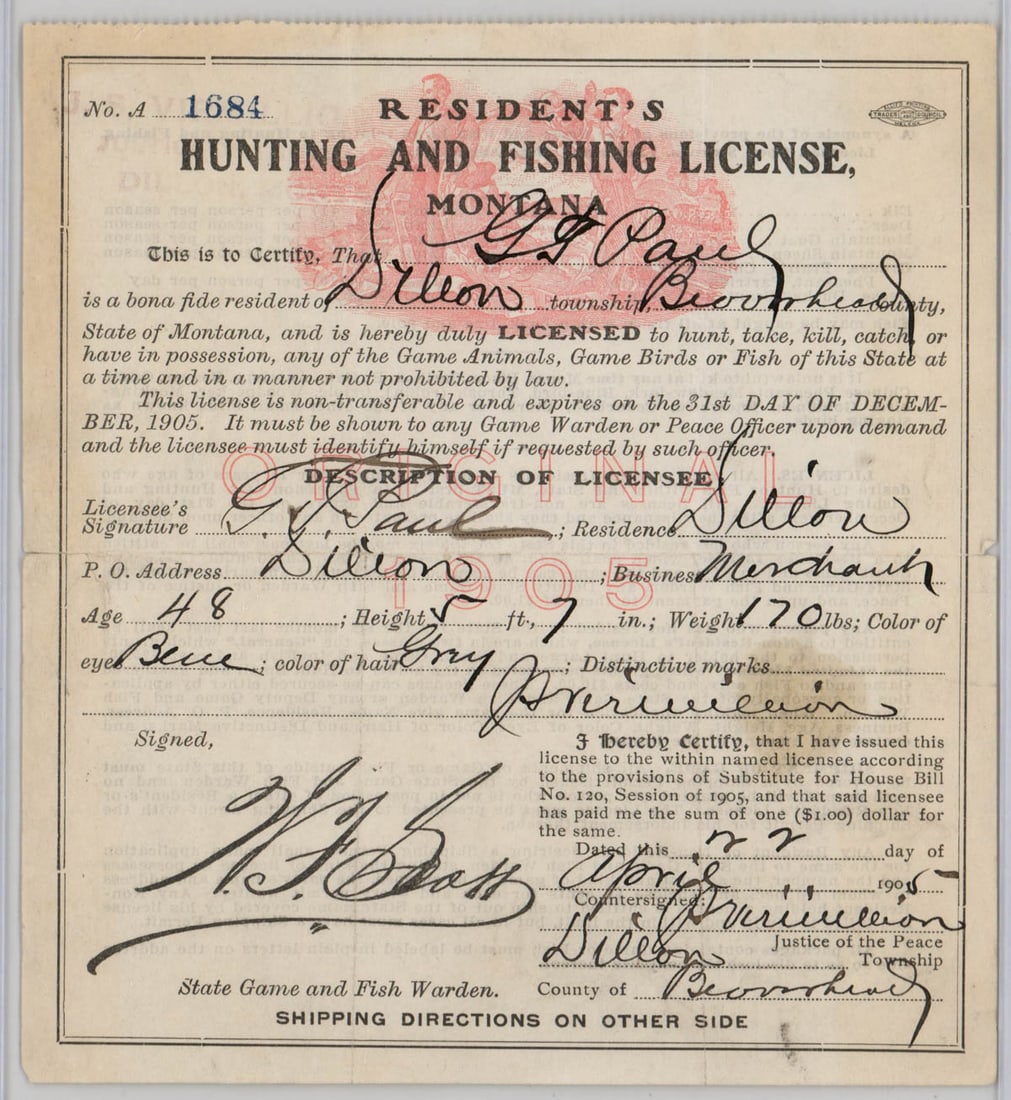 No. A 1684
RESIDENT'S
ALLIED PRINTING
TRADES UNION LABEL COUNCIL
HELENA
HUNTING AND FISHING LICENSE,
MONTANA
This is to Certify, That G T Paul
is a bona fide resident of Dillon township, Beaverhead county,
State of Montana, and is hereby duly LICENSED to hunt, take, kill, catch, or
have in possession, any of the Game Animals, Game Birds or Fish of this State at
a time and in a manner not prohibited by law.
This license is non-transferable and expires on the 31st DAY OF DECEM-
BER, 1905. It must be shown to any Game Warden or Peace Officer upon demand
and the licensee must identify himself if requested by such officer.
ORIGINAL
DESCRIPTION OF LICENSEE:
Licensee's
Signature G. T. Paul ; Residence Dillon
1905
P. O. Address Dillon ; Business Merchant
Age 48 ; Height 5 ft., 7 in.; Weight 170 lbs; Color of
eyes Blue ; color of hair Grey ; Distinctive marks
Vermillion
Signed,
I Hereby Certify, that I have issued this
license to the within named licensee according
to the provisions of Substitute for House Bill
No. 120, Session of 1905, and that said licensee
has paid me the sum of one ($1.00) dollar for
the same.
Dated this 22 day of
April 1905
Countersigned:
Vermillion
Justice of the Peace
Dillon Township
County of Beaverhead
W. F. Scott
State Game and Fish Warden.
SHIPPING DIRECTIONS ON OTHER SIDE